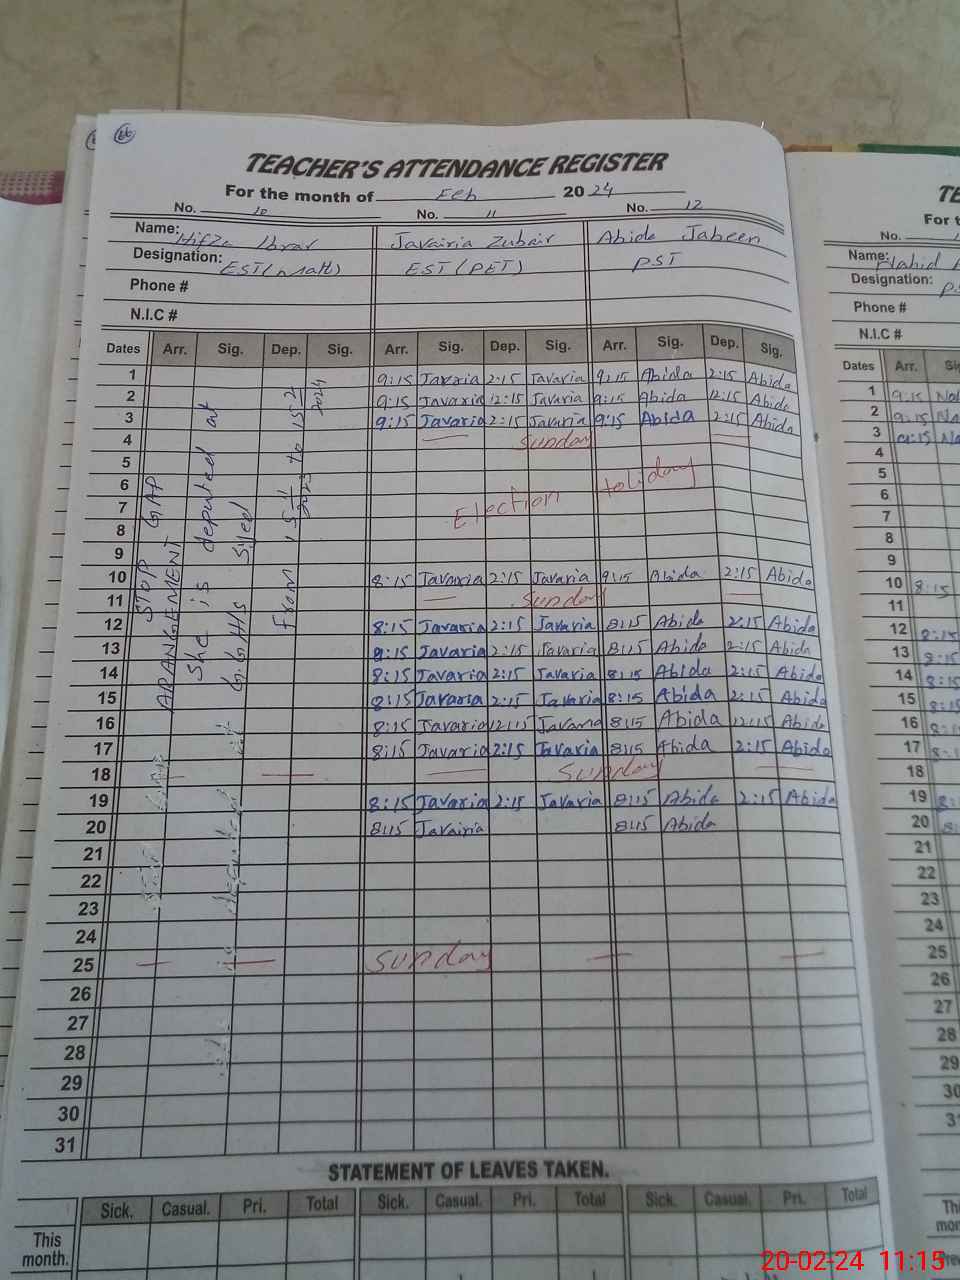 66
TEACHER'S ATTENDANCE REGISTER
For the month of Feb 2024
No. 10 No. 11 No. 12
Name: Hifza Ibrar Javairia Zubair Abida Jabeen
Designation: EST(Math) EST (PET) PST
Phone #
N.I.C #
Dates Arr. Sig. Dep. Sig. Arr. Sig. Dep. Sig. Arr. Sig. Dep. Sig.
STOP GAP
ARANGEMENT
She is deputed at
GGHS
From 15 11 2023 to 15 2 2024
1 9:15 Javaria 2:15 Javaria 9:15 Abida 2:15 Abida
2 9:15 Javaria 12:15 Javaria 9:15 Abida 12:15 Abida
3 9:15 Javaria 2:15 Javaria 9:15 Abida 2:15 Abida
4 Sunday
5
6
7 Election Holiday
8
9
10 8:15 Javaria 2:15 Javaria 9:15 Abida 2:15 Abida
11 Sunday
12 8:15 Javaria 2:15 Javaria 8:15 Abida 2:15 Abida
13 8:15 Javaria 2:15 Javaria 8:15 Abida 2:15 Abida
14 8:15 Javaria 2:15 Javaria 8:15 Abida 2:15 Abida
15 8:15 Javaria 2:15 Javaria 8:15 Abida 2:15 Abida
16 8:15 Javaria 12:15 Javaria 8:15 Abida 12:15 Abida
17 8:15 Javaria 2:15 Javaria 8:15 Abida 2:15 Abida
18 Sunday
19 8:15 Javaria 2:15 Javaria 8:15 Abida 2:15 Abida
20 8:15 Javairia 8:15 Abida
21
22
23
24
25 Sunday
26
27
28
29
30
31
STATEMENT OF LEAVES TAKEN.
Sick. Casual. Pri. Total Sick. Casual. Pri. Total Sick. Casual. Pri. Total
This month.
For t
No.
Name: Nahid
Designation: PS
Phone #
N.I.C #
Dates Arr. Si
1 9:15
2 9:15
3 9:15
4
5
6
7
8
9
10 8:15
11
12 8:15
13 8:15
14 8:15
15 8:15
16 8:15
17 8:15
18
19 8:15
20
21
22
23
24
25
26
27
28
29
30
20-02-24 11:15